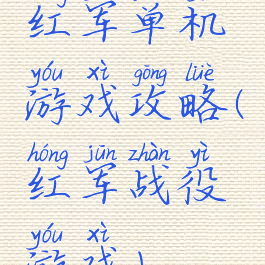 红军单机
yóu xì gōng lüè
游戏攻略(
hóng jūn zhàn yì
红军战役
yóu xì
游戏)